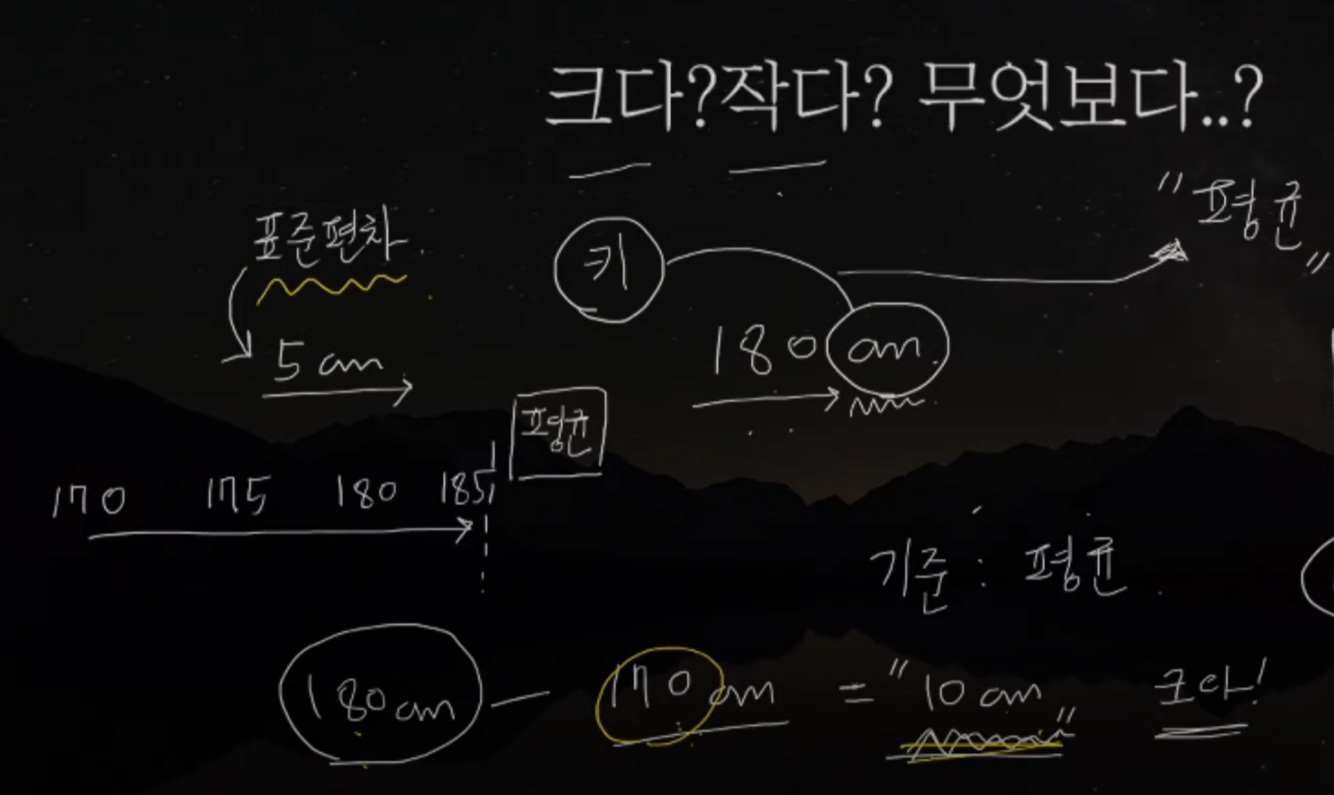 크다?작다? 무엇보다..?
"평균"
표준편차
키
180cm
5cm
평균
170 175 180 185
기준 : 평균
180cm - 170cm = "10cm" 크다!